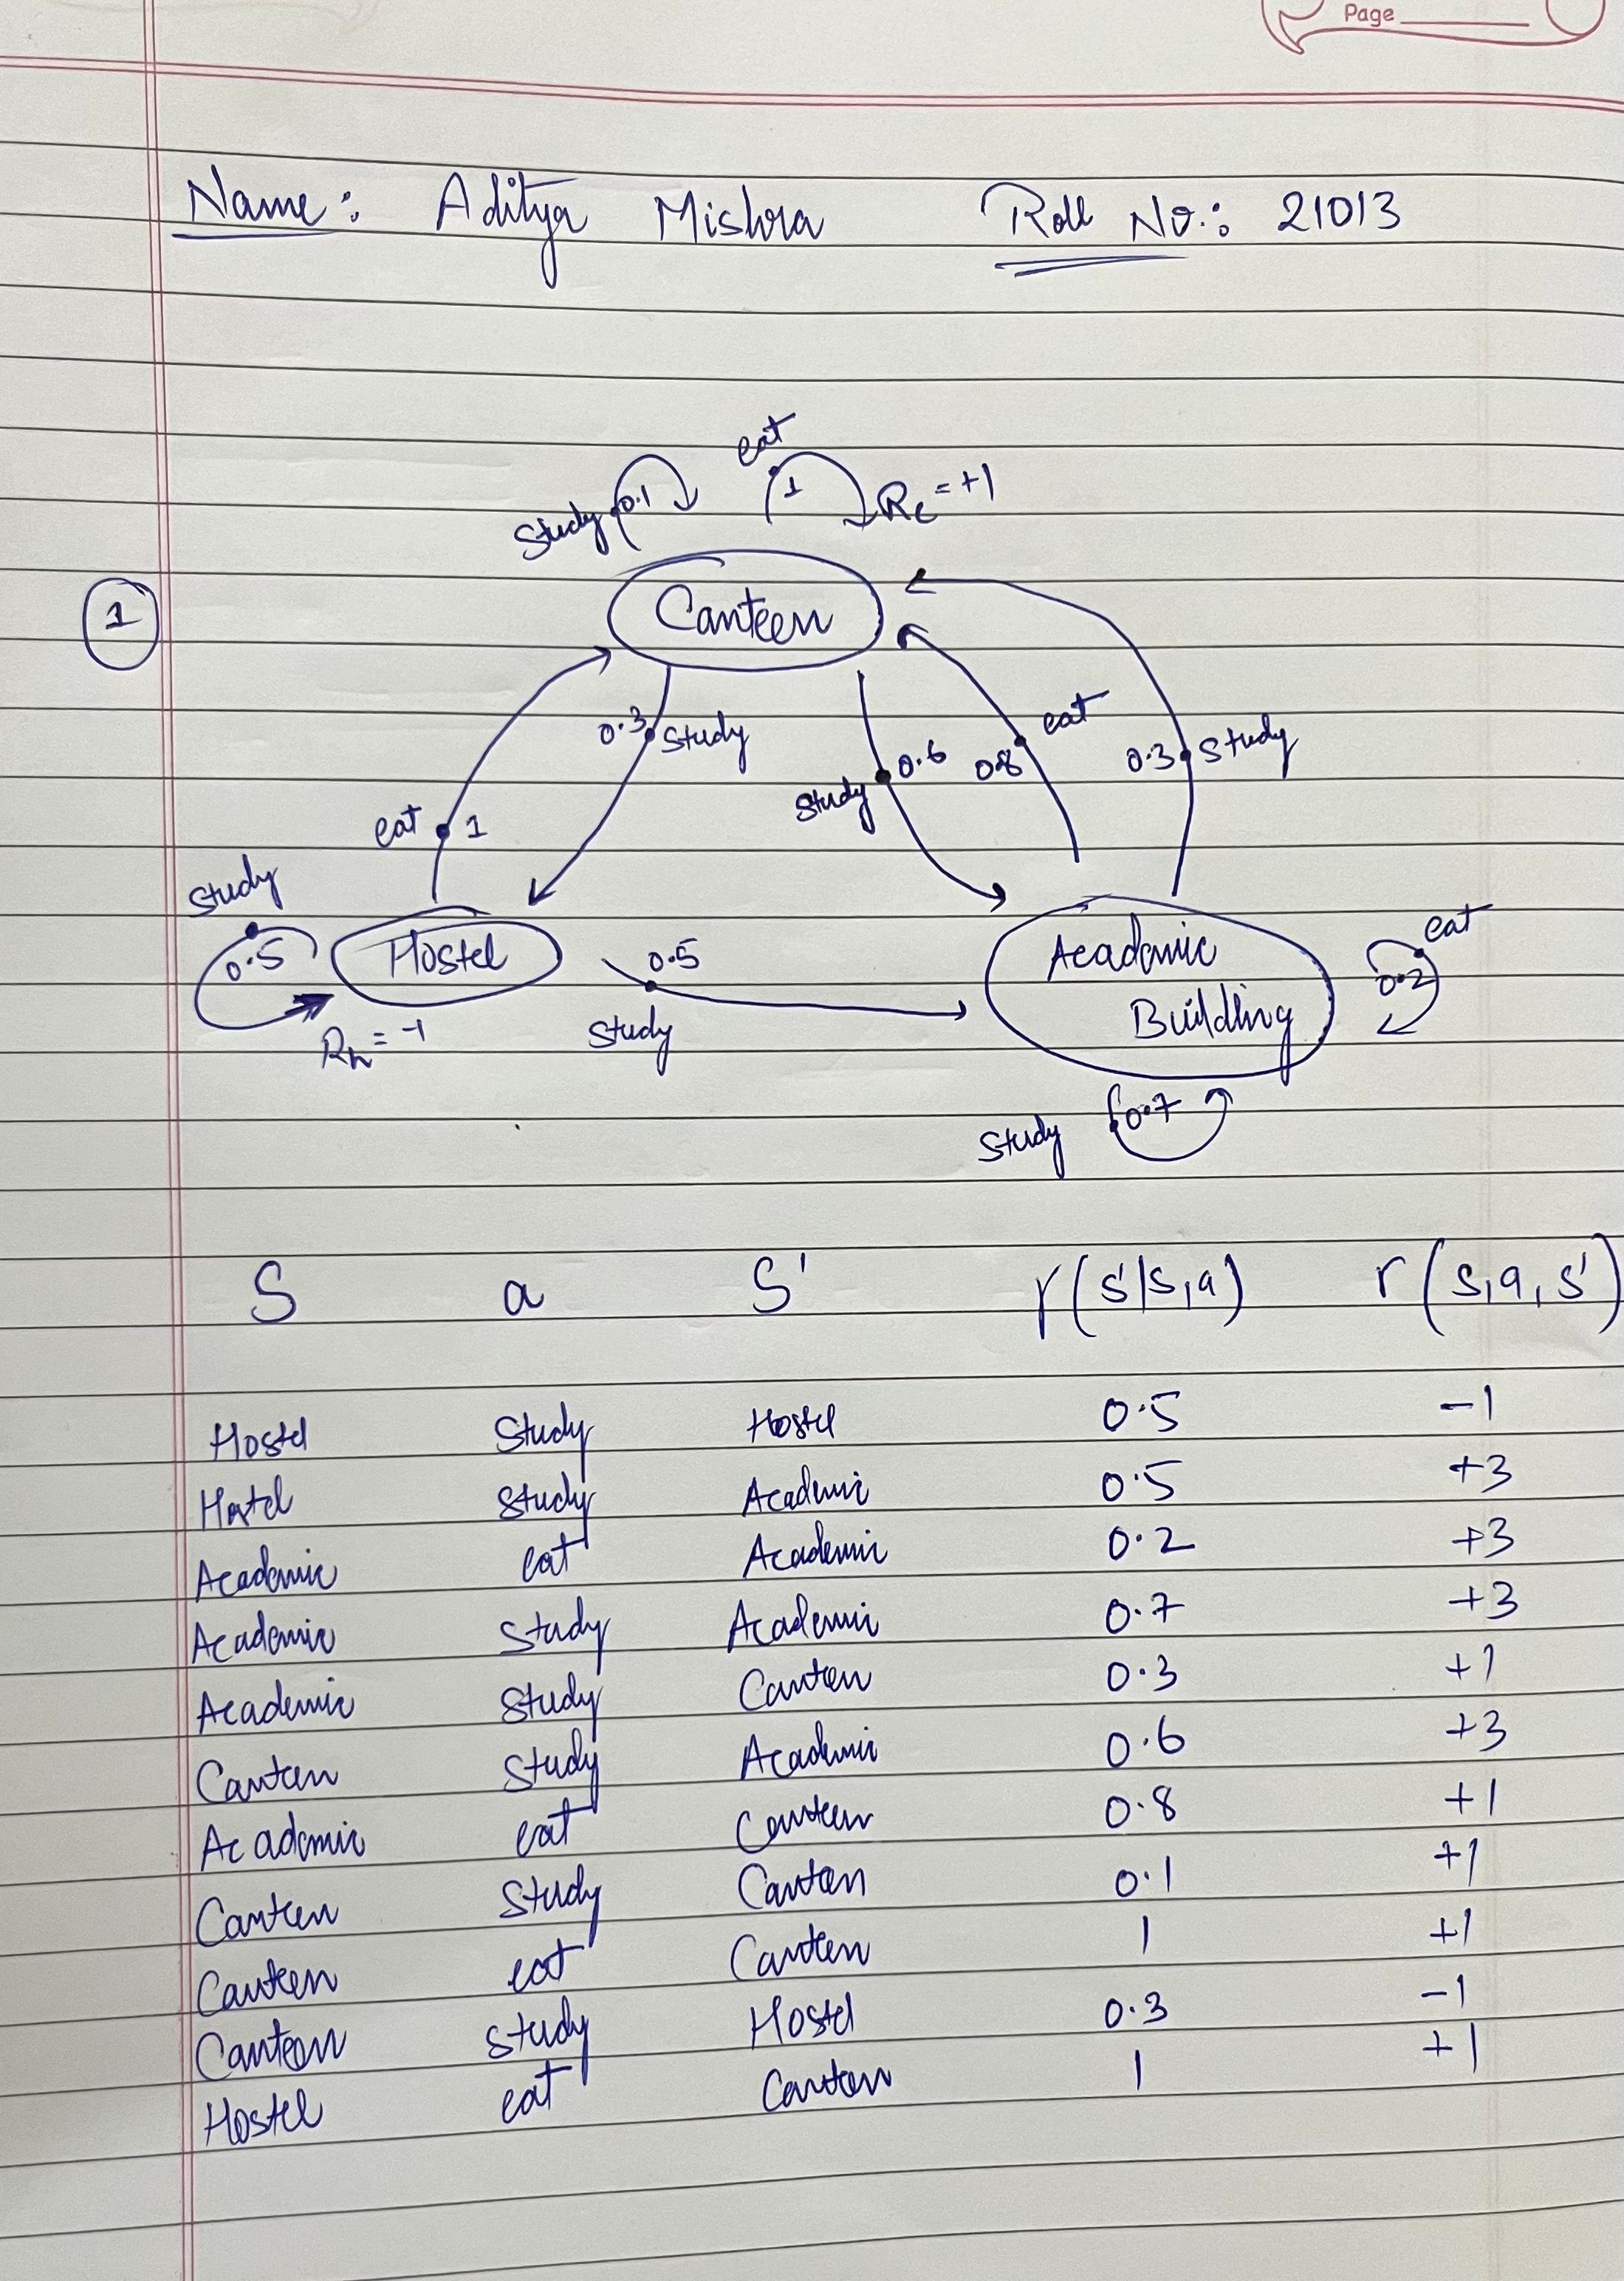 Page
Name: Aditya Mishra Roll No.: 21013
eat
Study 0.1 1 Rc = +1
1
Canteen
0.3 Study
eat
0.6 0.8
0.3 Study
Study
eat 1
Study
0.5 Hostel
0.5
Study
Rh = -1
Academic
Building
eat
0.2
Study 0.7
S a S' r(s'|s,a) r(s,a,s')
Hostel Study Hostel 0.5 -1
Hostel Study Academic 0.5 +3
Academic eat Academic 0.2 +3
Academic Study Academic 0.7 +3
Academic Study Canteen 0.3 +1
Canteen Study Academic 0.6 +3
Academic eat Canteen 0.8 +1
Canteen Study Canteen 0.1 +1
Canteen eat Canteen 1 +1
Canteen Study Hostel 0.3 -1
Hostel eat Canteen 1 +1